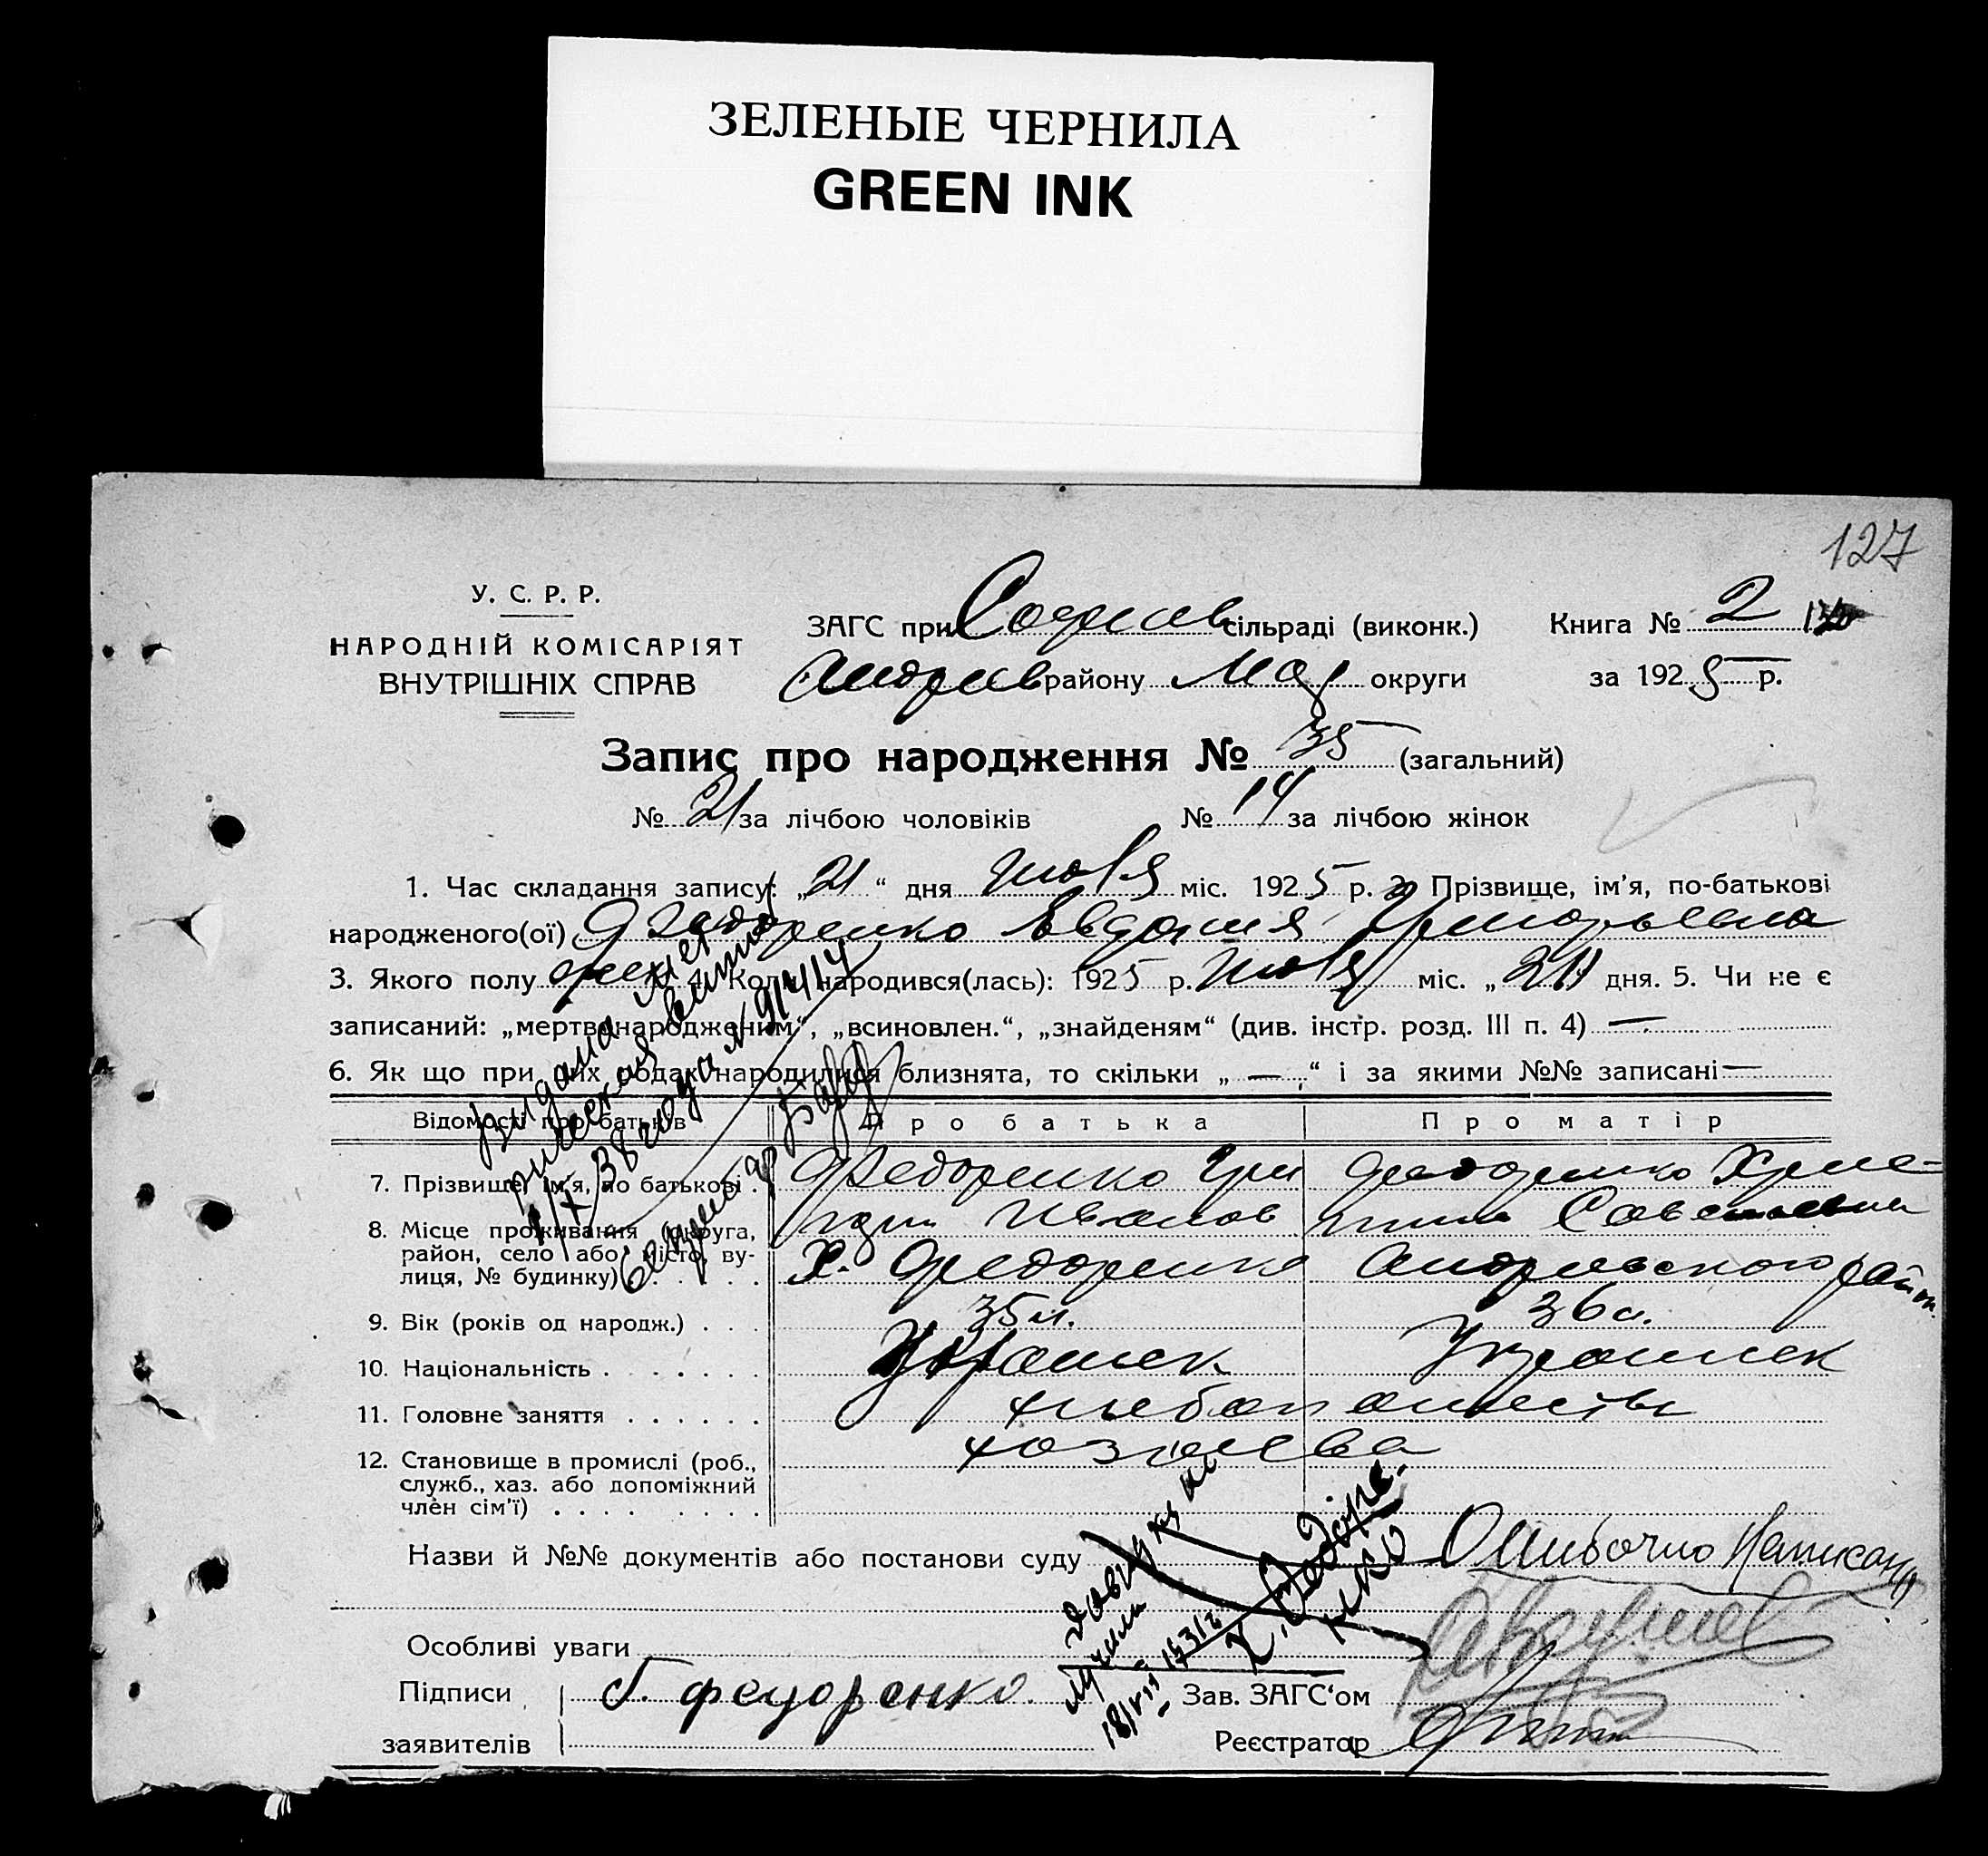 ЗЕЛЕНЫЕ ЧЕРНИЛА
GREEN INK
127
У. С. Р. Р.
НАРОДНІЙ КОМІСАРІЯТ
ВНУТРІШНІХ СПРАВ
ЗАГС при Софиев сільраді (виконк.)
Андриев району Мар округи
Книга № 2
за 1925 р.
Запис про народження № 35 (загальний)
№ 21 за лічбою чоловіків № 14 за лічбою жінок
1. Час складання запису: „21“ дня Июля міс. 1925 р. 2. Прізвище, ім'я, по-батькові
народженого(ої) Федоренко Евдокия Григорьевна
3. Якого полу жен 4. Коли народився(лась): 1925 р. Июля міс. „21“ дня. 5. Чи не є
записаний: „мертвонародженим“, „всиновлен.“, „знайденям“ (див. інстр. розд. III п. 4) —
6. Як що при цих родах народилися близнята, то скільки „ — “ і за якими №№ записані —
Відомості про батьків Про батька Про матір
7. Прізвище, ім'я, по батькові . Федоренко Гри Федоренко Хрис-
8. Місце проживання (округа,
район, село або місто, ву-
лиця, № будинку) . . . .
Иванов
Х. Федоренко Андриевского район
9. Вік (років од народж.) . . . 35 л. 36 л.
10. Національність . . . . . . . Украинск Украинск
11. Головне заняття . . . . . . хлебопашеств
12. Становище в промислі (роб.,
служб., хаз. або допоміжний
член сім'ї) . . . . . . . .
хозяева
Назви й №№ документів або постанови суду Ошибочно Написано
Особливі уваги
Підписи Г. федоренко Зав. ЗАГС‘ом
заявителів Реєстратор
Видана
38 года № 91414
Довідку
Х. Федоре-
нко